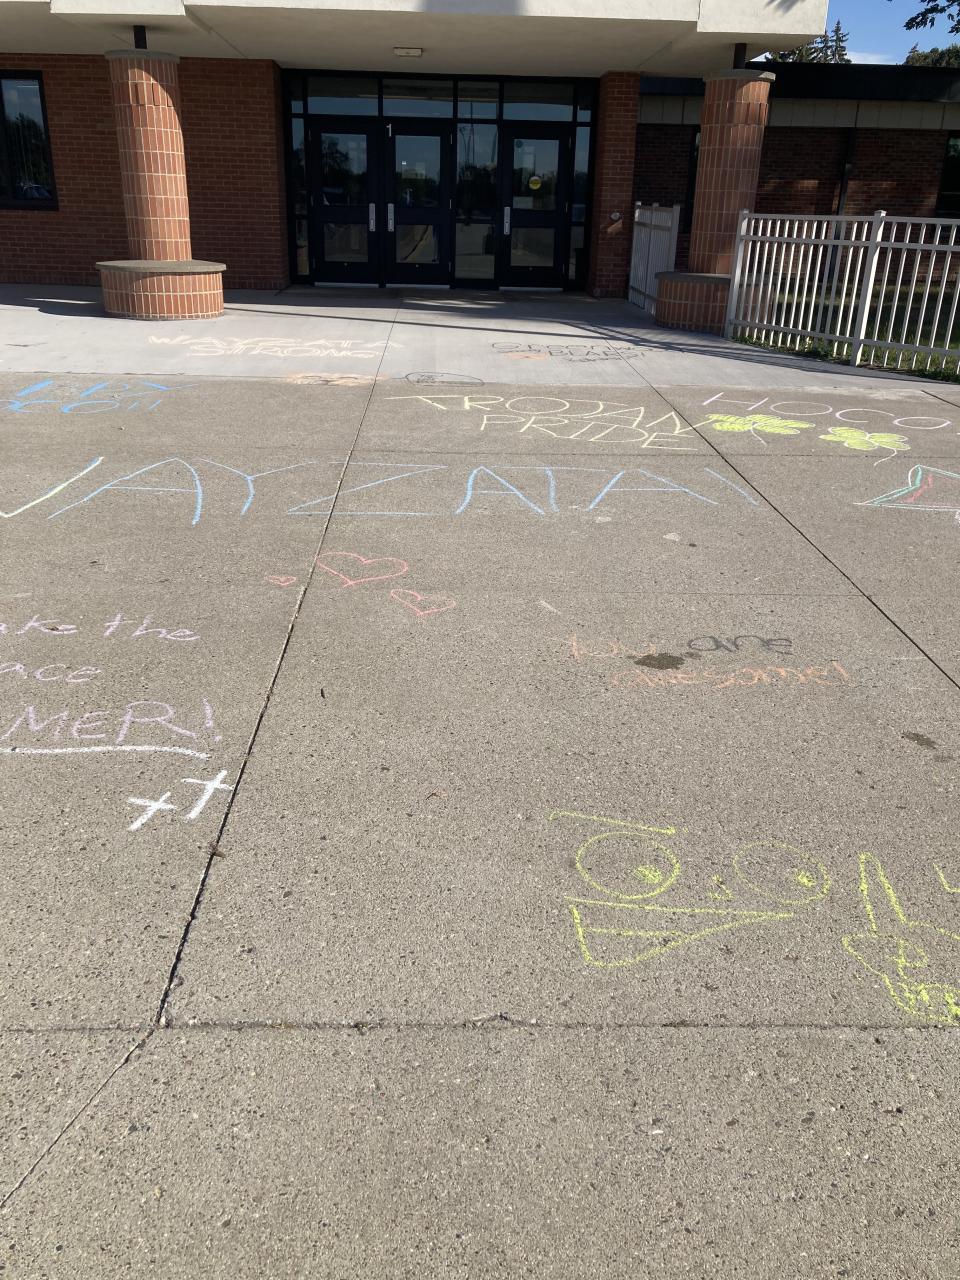 1
WAYZATA
STRONG
BEARS!
TROJAN
PRIDE
HOCO
WAYZATA!
the
MER!
you are
awesome!